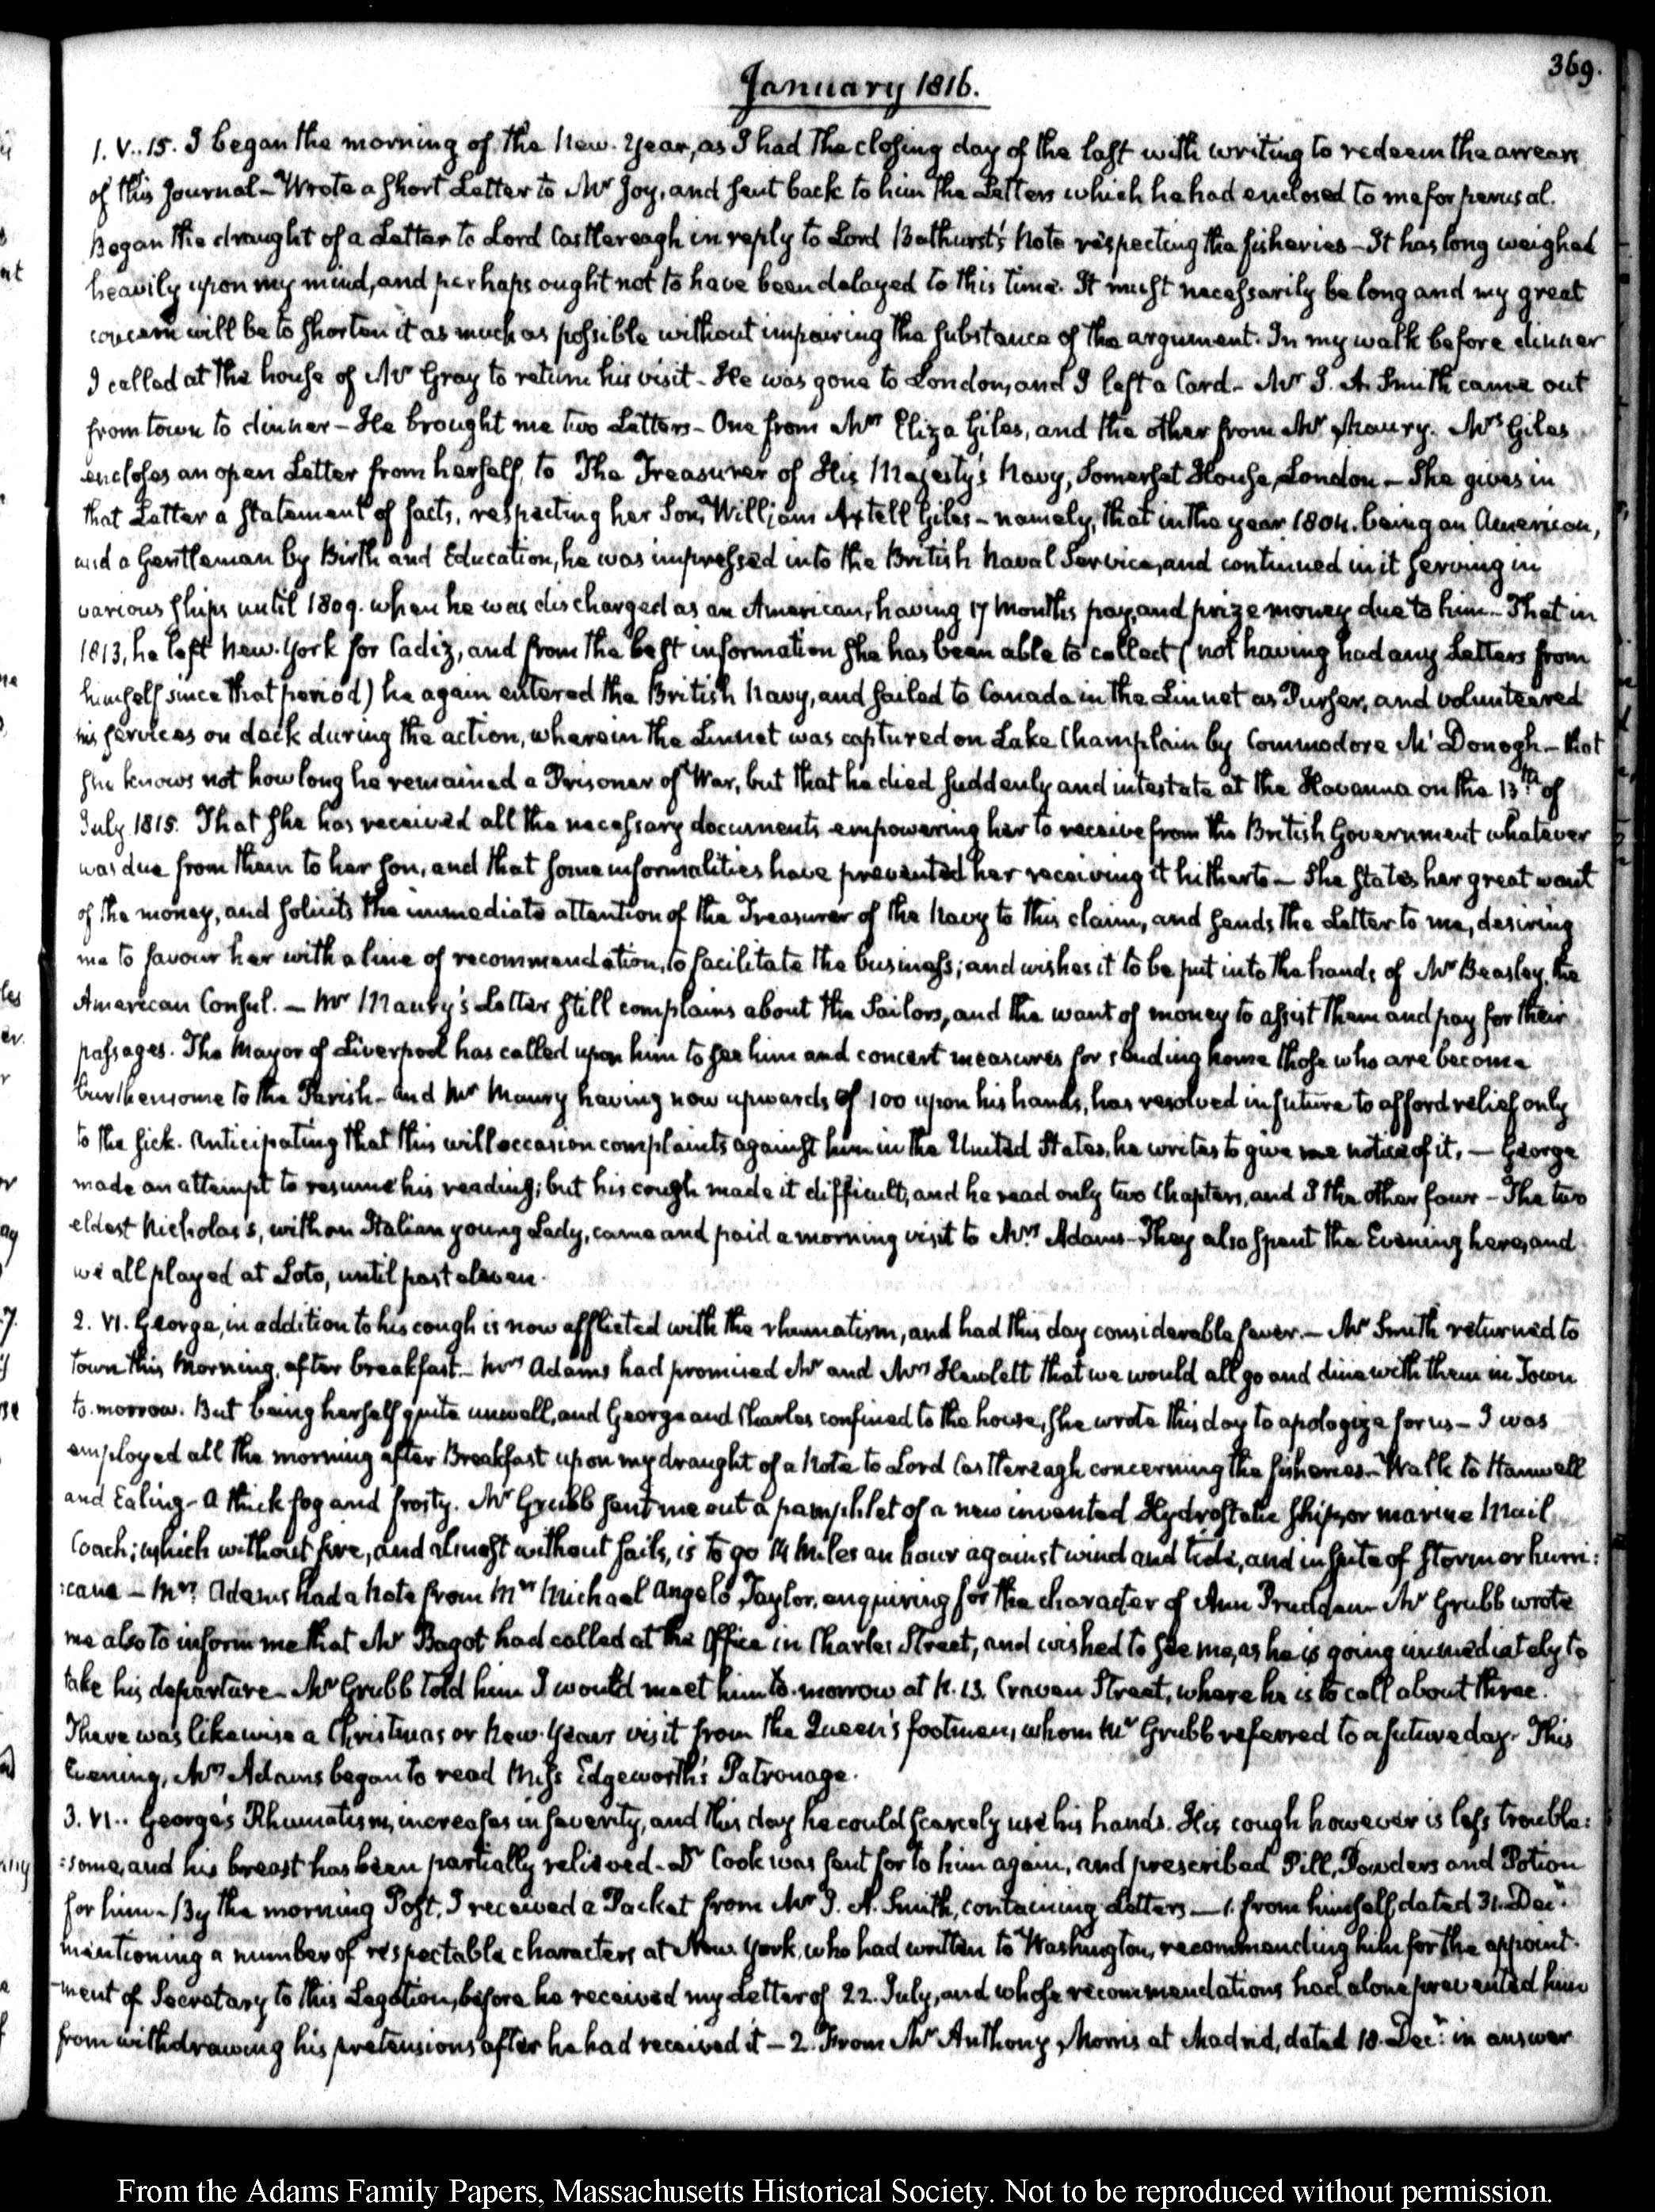 369.
January 1816.
1. V..15. I began the morning of the New-Year, as I had the closing day of the last with writing to redeem the arrears
of this Journal - Wrote a short Letter to Mr Joy, and sent back to him the Letters which he had enclosed to me for perusal.
Began the draught of a Letter to Lord Castlereagh in reply to Lord Bathurst's Note respecting the fisheries - It has long weighed
heavily upon my mind, and perhaps ought not to have been delayed to this time. It must necessarily be long and my great
concern will be to shorten it as much as possible without impairing the substance of the argument. In my walk before dinner
I called at the house of Mr Gray to return his visit - He was gone to London, and I left a Card - Mr J. A. Smith came out
from town to dinner - He brought me two Letters - One from Mrs Eliza Giles, and the other from Mr Maury. Mrs Giles
encloses an open Letter from herself, to The Treasurer of His Majesty's Navy, Somerset House, London - She gives in
that Letter a statement of facts, respecting her Son, William Axtell Giles - namely, that in the year 1804. being an American,
and a Gentleman by Birth and Education, he was impressed into the British Naval Service, and continued in it serving in
various ships until 1809. when he was discharged as an American, having 17 Months pay, and prize money due to him - That in
1813, he left New-York for Cadiz, and from the best information she has been able to collect (not having had any Letters from
himself since that period) he again entered the British Navy, and sailed to Canada in the Linnet as Purser, and volunteered
his services on deck during the action, wherein the Linnet was captured on Lake Champlain by Commodore McDonogh - that
she knows not how long he remained a Prisoner of War, but that he died suddenly and intestate at the Havanna on the 13th of
July 1815. That she has received all the necessary documents empowering her to receive from the British Government whatever
was due from them to her son, and that some informalities have prevented her receiving it hitherto - She states her great want
of the money, and solicits the immediate attention of the Treasurer of the Navy to this claim, and sends the Letter to me, desiring
me to favour her with a line of recommendation, to facilitate the business; and wishes it to be put into the hands of Mr Beasley, the
American Consul. - Mr Maury's Letter still complains about the Sailors, and the want of money to assist them and pay for their
passages. The Mayor of Liverpool has called upon him to see him and concert measures for sending home those who are become
burthensome to the Parish - and Mr Maury having now upwards of 100 upon his hands, has resolved in future to afford relief only
to the sick. Anticipating that this will occasion complaints against him in the United States, he writes to give me notice of it. - George
made an attempt to resume his reading; but his cough made it difficult, and he read only two Chapters, and I the other four - The two
eldest Nicholas's, with an Italian young Lady, came and paid a morning visit to Mrs Adams - They also spent the Evening here, and
we all played at Loto, until past eleven.
2. VI. George, in addition to his cough is now afflicted with the rhumatism, and had this day considerable fever. - Mr Smith returned to
town this Morning, after breakfast - Mrs Adams had promised Mr and Mrs Hewlett that we would all go and dine with them in Town
to-morrow. But being herself quite unwell, and George and Charles confined to the house, she wrote this day to apologize for us - I was
employed all the morning after Breakfast upon my draught of a Note to Lord Castlereagh concerning the fisheries - Walk to Hanwell
and Ealing - A thick fog and frosty. Mr Grubb sent me out a pamphlet of a new invented Hydrostatic ship, or marine Mail
Coach; which without fire, and almost without sails, is to go 14 Miles an hour against wind and tide, and in spite of storm or hurri:
:cane - Mrs Adams had a Note from Mrs Michael Angelo Taylor, enquiring for the character of Ann Prudden - Mr Grubb wrote
me also to inform me that Mr Bagot had called at the Office in Charles Street, and wished to see me, as he is going immediately to
take his departure - Mr Grubb told him I would meet him to-morrow at N. 13. Craven Street, where he is to call about three.
There was likewise a Christmas or New-Years visit from the Queen's footmen, whom Mr Grubb referred to a future day. This
Evening, Mrs Adams began to read Miss Edgeworth's Patronage.
3. VI.. George's Rhumatism, increases in severity, and this day he could scarcely use his hands. His cough however is less trouble:
:some, and his breast has been partially relieved - Dr Cook was sent for to him again, and prescribed Pill, Powders and Potion
for him - By the morning Post, I received a Packet from Mr J. A. Smith, containing Letters - 1. from himself, dated 31. Decr.
mentioning a number of respectable characters at New-York, who had written to Washington, recommending him for the appoint-
-ment of Secretary to this Legation, before he received my Letter of 22. July, and whose recommendations had alone prevented him
from withdrawing his pretensions after he had received it - 2. From Mr Anthony Morris at Madrid, dated 18. Decr. in answer
From the Adams Family Papers, Massachusetts Historical Society. Not to be reproduced without permission.